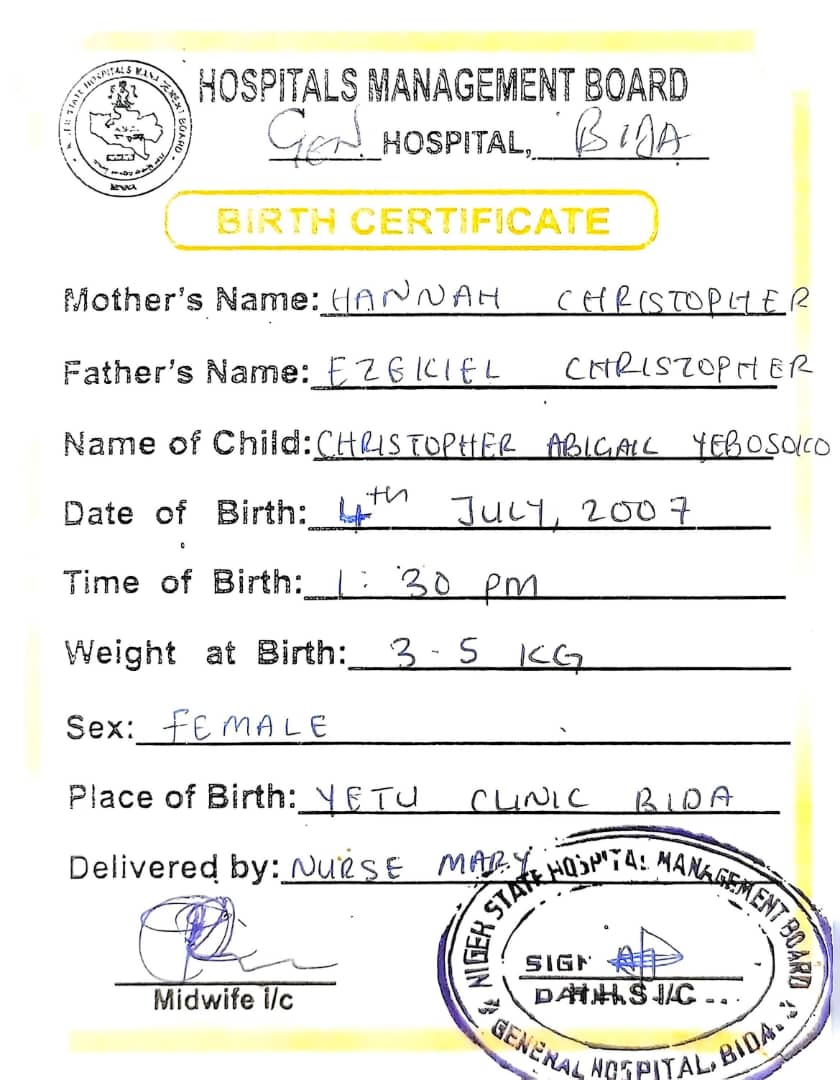 HOSPITALS MANAGEMENT BOARD
GEN. HOSPITAL, BIDA
BIRTH CERTIFICATE
Mother's Name: HANNAH CHRISTOPHER
Father's Name: EZEKIEL CHRISTOPHER
Name of Child: CHRISTOPHER ABIGAIL YEBOSOKO
Date of Birth: 4th JULY, 2007
Time of Birth: 1:30 PM
Weight at Birth: 3-5 KG
Sex: FEMALE
Place of Birth: YETU CLINIC BIDA
Delivered by: NURSE MARY
NIGER STATE HOSPITAL MANAGEMENT BOARD
SIGN
Midwife i/c
GENERAL HOSPITAL, BIDA.